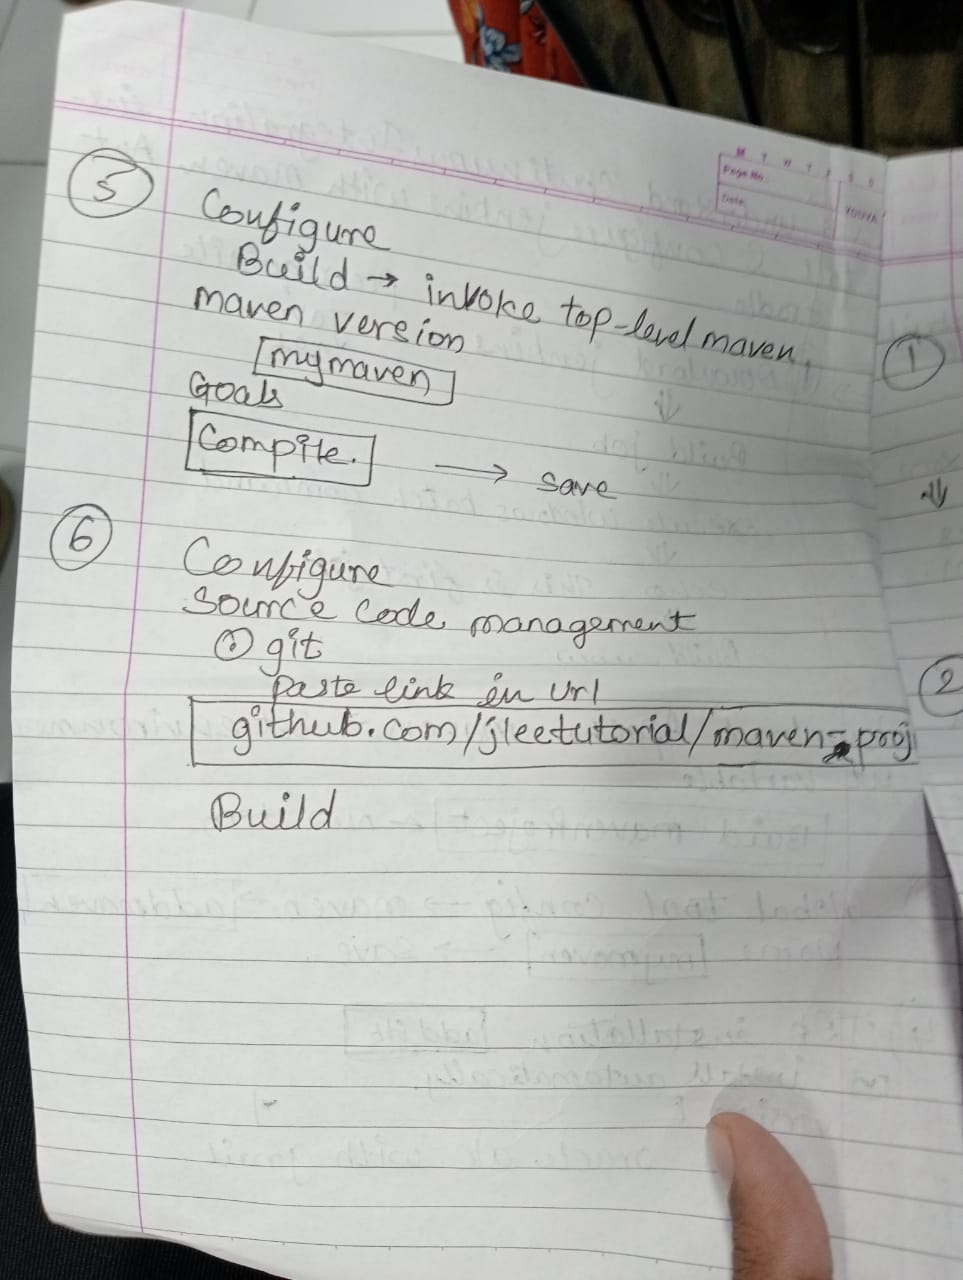 M T W T F S S
Page No.
Date:
YOUVA
5
Configure
Build → invoke top-level maven
maven version
mymaven
Goals
Compile.
→ save
6
Configure
Source Code management
git
Paste link in Url
github.com/jleetutorial/maven-proj
Build
1
2